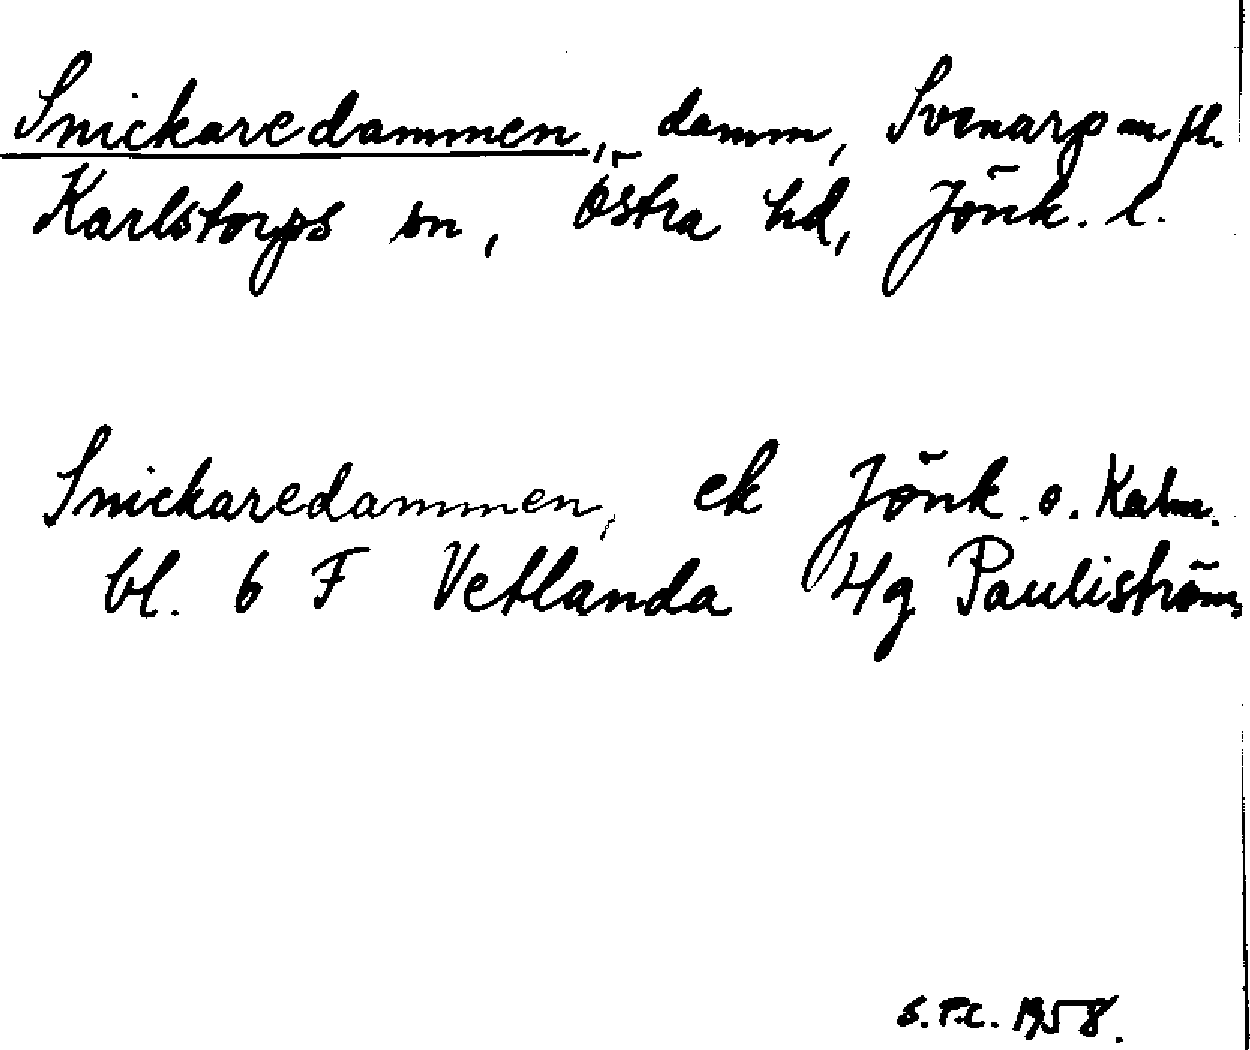 Snickaredammen, damm, Svenarp m fl.
Karlstorps sn, Östra hd, Jönk. l.
Snickaredammen, ek Jönk. o. Kalm.
bl. 6 F Vetlanda 4g Pauliström,
S.F.C. 1958.